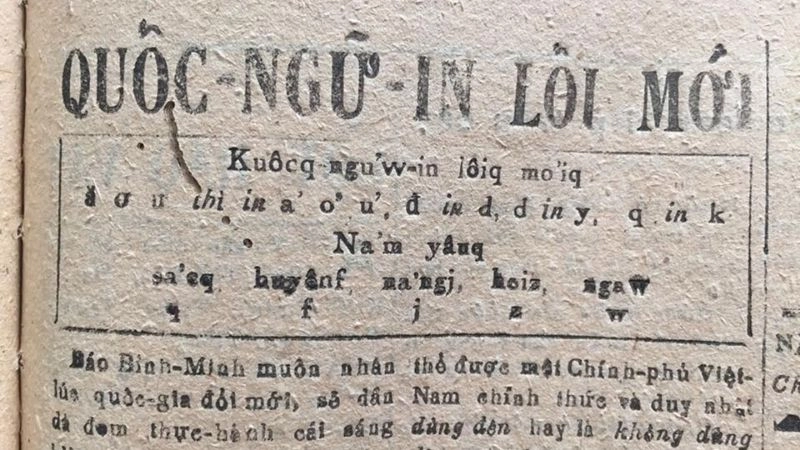 QUỐC-NGỮ-IN LỐI MỚI
Kuôcq-ngu’w-in lôiq mo’iq
ă ơ ư thì in a’ o’ u’, đ in d, d in y, q in k
Na’m yâuq
sa’cq huyênf, na’ngj, hoiz, ngaw
q f j z w
Báo Bình-Minh muôn nhân
lúc quốc-gia đổi mới, sẽ dần
dà đem thực-hành cái sáng
thổ được một Chính-phủ Việt-
Nam chính thức và duy nhất
dùng đến hay là không dùng
N
Ch